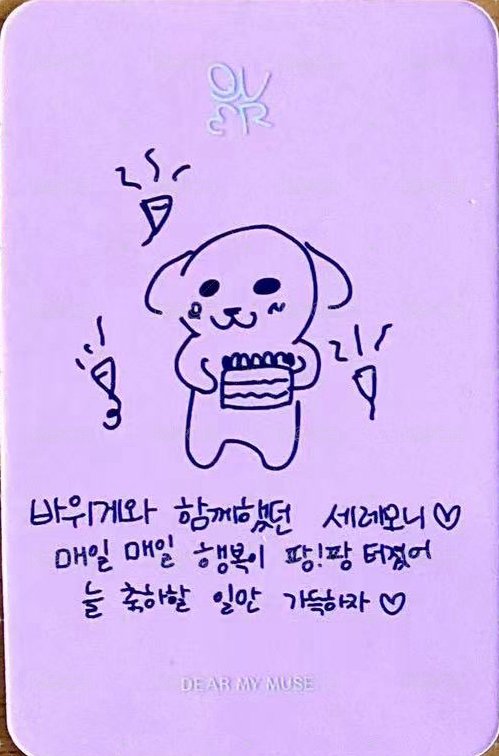 QWER
바위게와 함께했던 세레모니♡
매일 매일 행복이 팡!팡 터졌어
늘 축하할 일만 가득하자♡
DEAR MY MUSE